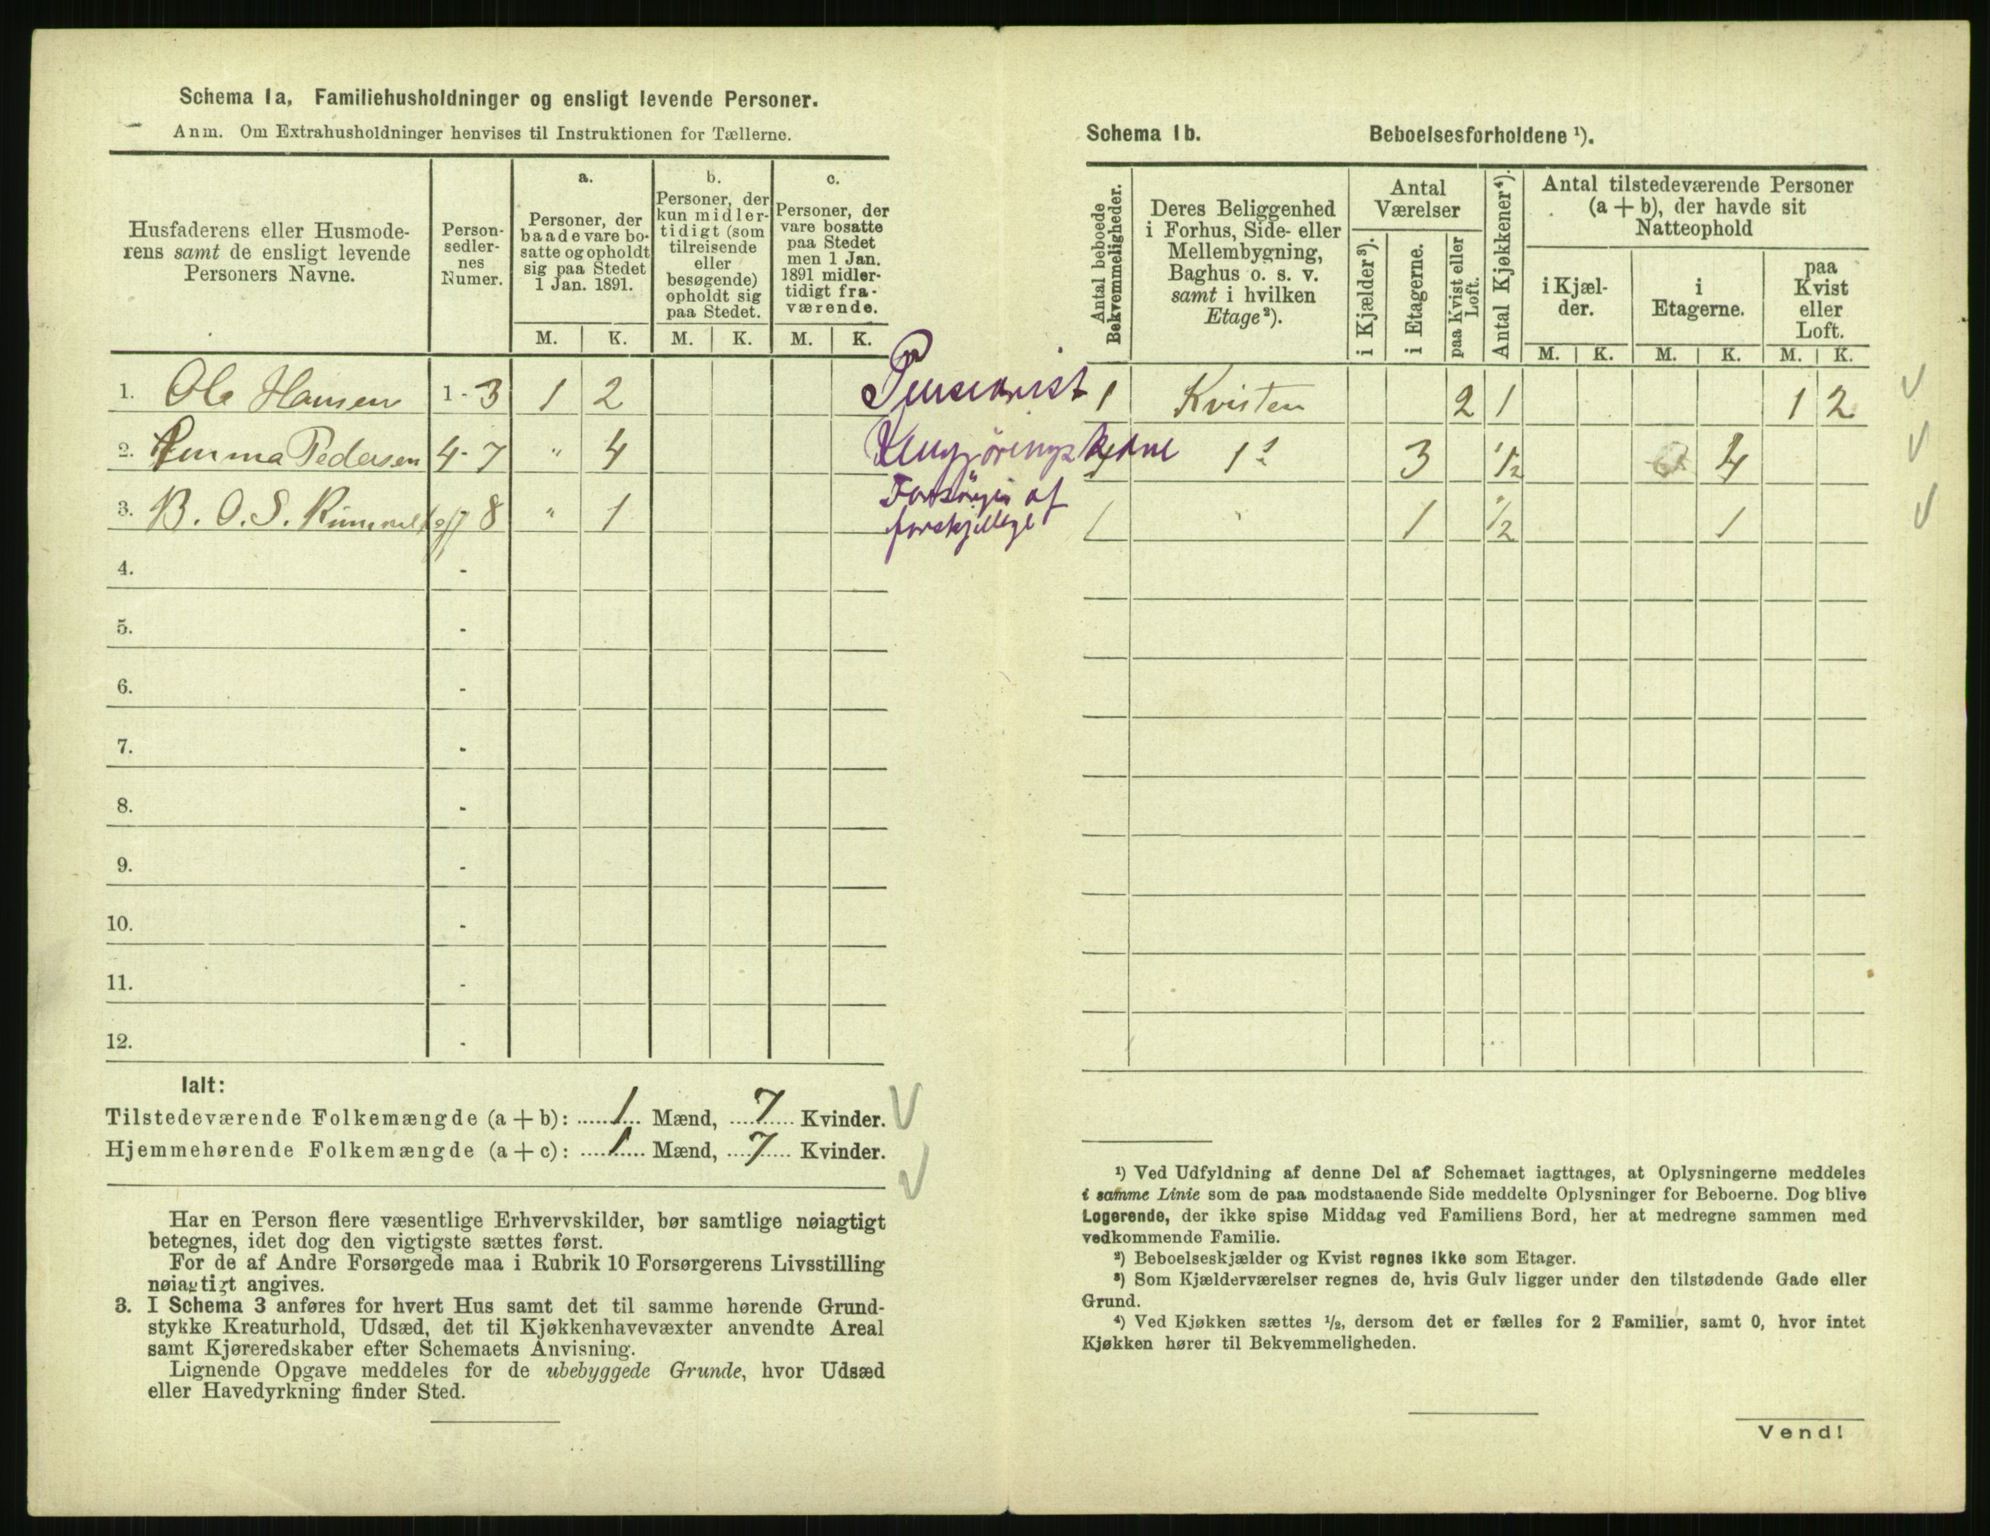 Schema 1a, Familiehusholdninger og ensligt levende Personer.
Anm. Om Extrahusholdninger henvises til Instruktionen for Tællerne.
Husfaderens eller Husmode-
rens samt de ensligt levende
Personers Navne.
Person-
sedler-
nes
Numer.
a.
Personer, der
baade vare bo-
satte og opholdt
sig paa Stedet
1 Jan. 1891.
b.
Personer, der
kun midler-
tidigt (som
tilreisende
eller
besøgende)
opholdt sig
paa Stedet.
c.
Personer, der
vare bosatte
paa Stedet
men 1 Jan.
1891 midler-
tidigt fra-
værende.
M. K. M. K. M. K.
1. Ole Hansen 1-3 1 2 Pensionist
2. Emma Pedersen 4-7 " 4 Rengjøringskone
3. B. O. S. 8 " 1 Forsørges af
forskjellige
4. -
5. -
6. -
7. -
8. -
9. -
10. -
11. -
12. -
Ialt:
Tilstedeværende Folkemængde (a + b): 1 Mænd, 7 Kvinder.
Hjemmehørende Folkemængde (a + c): 1 Mænd, 7 Kvinder.
Har en Person flere væsentlige Erhvervskilder, bør samtlige nøiagtigt
betegnes, idet dog den vigtigste sættes først.
For de af Andre Forsørgede maa i Rubrik 10 Forsørgerens Livsstilling
nøiagtigt angives.
3. I Schema 3 anføres for hvert Hus samt det til samme hørende Grund-
stykke Kreaturhold, Udsæd, det til Kjøkkenhavevæxter anvendte Areal
samt Kjøreredskaber efter Schemaets Anvisning.
Lignende Opgave meddeles for de ubebyggede Grunde, hvor Udsæd
eller Havedyrkning finder Sted.
Schema 1b. Beboelsesforholdene ¹).
Antal beboede
Bekvemmeligheder.
Deres Beliggenhed
i Forhus, Side- eller
Mellembygning,
Baghus o. s. v.
samt i hvilken
Etage²).
Antal
Værelser
i Kjælder³).
i Etagerne.
paa Kvist eller
Loft.
Antal Kjøkkener⁴).
Antal tilstedeværende Personer
(a + b), der havde sit
Natteophold
i Kjæl-
der.
i
Etagerne.
paa
Kvist
eller
Loft.
M. K. M. K. M. K.
1 Kvisten 2 1 1 2
1 3 ½ 4
1 " 1 ½ 1
¹) Ved Udfyldning af denne Del af Schemaet iagttages, at Oplysningerne meddeles
i samme Linie som de paa modstaaende Side meddelte Oplysninger for Beboerne. Dog blive
Logerende, der ikke spise Middag ved Familiens Bord, her at medregne sammen med
vedkommende Familie.
²) Beboelseskjælder og Kvist regnes ikke som Etager.
³) Som Kjælderværelser regnes de, hvis Gulv ligger under den tilstødende Gade eller
Grund.
⁴) Ved Kjøkken sættes ½, dersom det er fælles for 2 Familier, samt 0, hvor intet
Kjøkken hører til Bekvemmeligheden.
Vend!